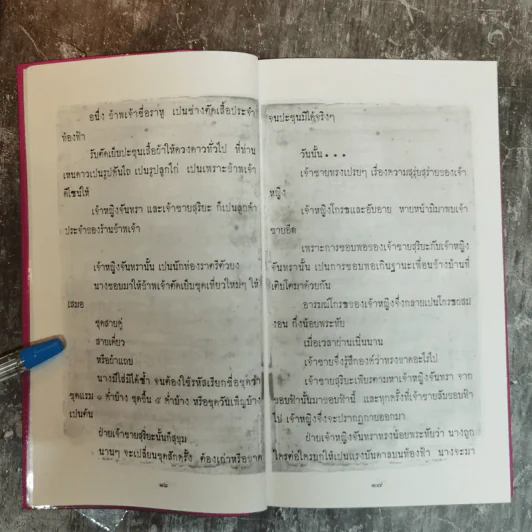 อนึ่ง ข้าพเจ้าชื่อราหู เปนช่างตัดเสื้อประจำ
ท้องฟ้า
รับตัดเย็บปะชุนเสื้อผ้าให้ดวงดาวทั่วไป ที่ท่าน
เหนดาวเปนรูปคันไถ เปนรูปลูกไก่ เปนเพราะข้าพเจ้า
ดีไซน์ให้
เจ้าหญิงจันทรา และเจ้าชายสุริยะ ก็เปนลูกค้า
ประจำของร้านข้าพเจ้า
เจ้าหญิงจันทรานั้น เปนนักท่องราตรีตัวยง
นางชอบมาให้ข้าพเจ้าตัดเย็บชุดเที่ยวใหม่ๆ ให้
เสมอ
ชุดสายคู่
สายเดี่ยว
หรือผ้าแถบ
นางมีใส่มิได้ซ้ำ จนต้องใช้รหัสเรียกชื่อชุดว่า
ชุดแรม ๑ ค่ำบ้าง ชุดขึ้น ๕ ค่ำบ้าง หรือชุดวันเพ็ญบ้าง
เปนต้น
ฝ่ายเจ้าชายสุริยะนั้นก็สุขุม
นานๆ จะเปลี่ยนชุดสักครั้ง ต้องเก่าหรือขาด
๑๖
จนปะชุนมิได้จริงๆ
วันนั้น...
เจ้าชายทรงเปรยๆ เรื่องความสุรุ่ยสุร่ายของเจ้า
หญิง
เจ้าหญิงโกรธและอับอาย หายหน้ามิมาพบเจ้า
ชายอีก
เพราะการชอบพอของเจ้าชายสุริยะกับเจ้าหญิง
จันทรานั้น เปนการชอบพอเกินฐานะเพื่อนข้างบ้านที่
เติบโตมาด้วยกัน
อารมณ์โกรธของเจ้าหญิงจึงกลายเปนโกรธผสม
งอน กึ่งน้อยพระทัย
เมื่อเวลาผ่านเนิ่นนาน
เจ้าชายจึงรู้สึกองค์ว่าทรงขาดอะไรไป
เจ้าชายสุริยะเพียรตามหาเจ้าหญิงจันทรา จาก
ขอบฟ้านั้นมาขอบฟ้านี้ และทุกครั้งที่เจ้าชายลับขอบฟ้า
ไป เจ้าหญิงจึงจะปรากฏกายออกมา
ฝ่ายเจ้าหญิงจันทราทรงน้อยพระทัยว่า นางถูก
ใครต่อใครยกให้เปนแรงบันดาลบนท้องฟ้า นางจะมา
๑๗